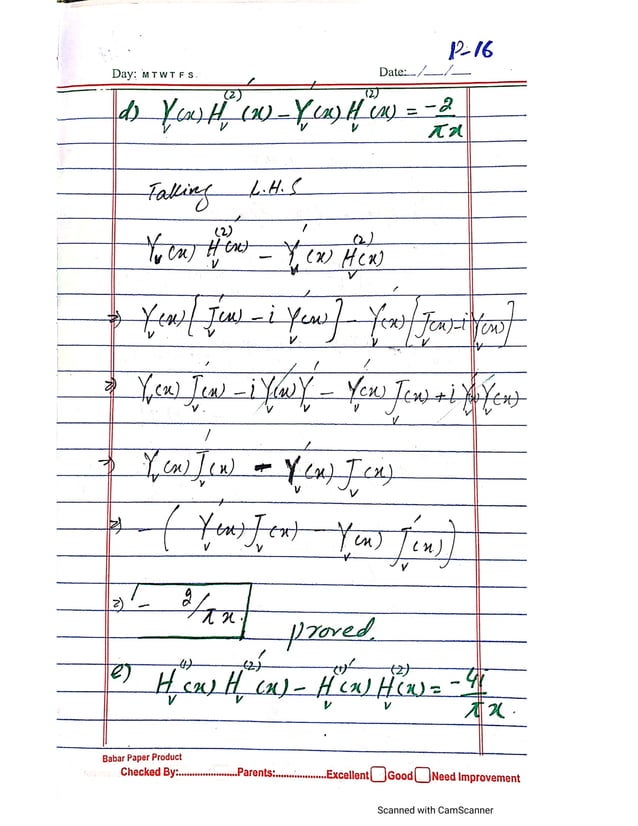 P-16
Day: M T W T F S Date:__/__/__
d) Yᵥ(x) Hᵥ⁽²⁾′(x) - Yᵥ′(x) Hᵥ⁽²⁾(x) = -2/πx
Talking L.H.S
Yᵥ(x) Hᵥ⁽²⁾′(x) - Yᵥ′(x) Hᵥ⁽²⁾(x)
⇒ Yᵥ(x)[Jᵥ′(x) - i Yᵥ′(x)] - Yᵥ′(x)[Jᵥ(x) - i Yᵥ(x)]
⇒ Yᵥ(x) Jᵥ′(x) - i Yᵥ(x) Yᵥ′ - Yᵥ′(x) Jᵥ(x) + i Yᵥ′ Yᵥ(x)
⇒ Yᵥ(x) Jᵥ′(x) - Yᵥ′(x) Jᵥ(x)
⇒ - (Yᵥ′(x) Jᵥ(x) - Yᵥ(x) Jᵥ′(x))
⇒ - 2/πx
proved.
e) Hᵥ⁽¹⁾(x) Hᵥ⁽²⁾′(x) - Hᵥ⁽¹⁾′(x) Hᵥ⁽²⁾(x) = -4i/πx.
Babar Paper Product
Checked By:......................Parents:...................Excellent Good Need Improvement
Scanned with CamScanner